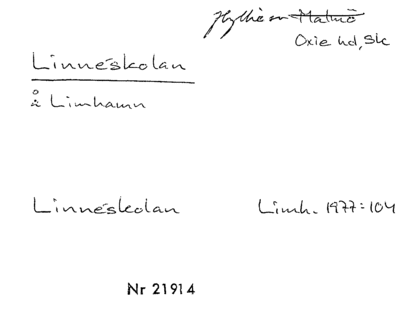 Hyllie sn Malmö
Oxie hd, Sk
Linnéskolan
å Limhamn
Linnéskolan Limh. 1977:104
Nr 21914